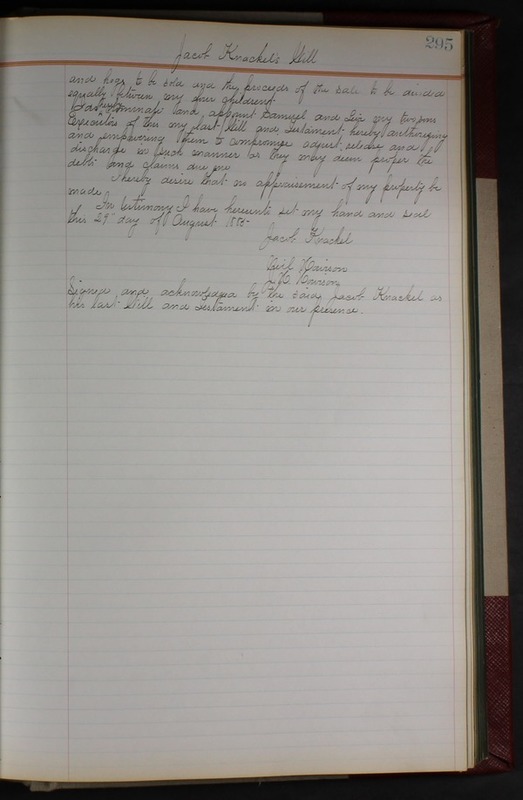 295
Jacob Knackel's Will
and hogs to be sold and the proceeds of the sale to be divided
equally between my four children.
I do hereby nominate and appoint Samuel and my two sons
Executors of this my last Will and Testament hereby authorizing
and empowering them to compromise adjust release and
discharge in such manner as they may deem proper the
debts and claims due me
I hereby desire that no appraisement of my property be
made
In testimony I have hereunto set my hand and seal
this 29" day of August
Jacob Knackel
Signed and acknowledged by the said Jacob Knackel as
his last Will and Testament in our presence.